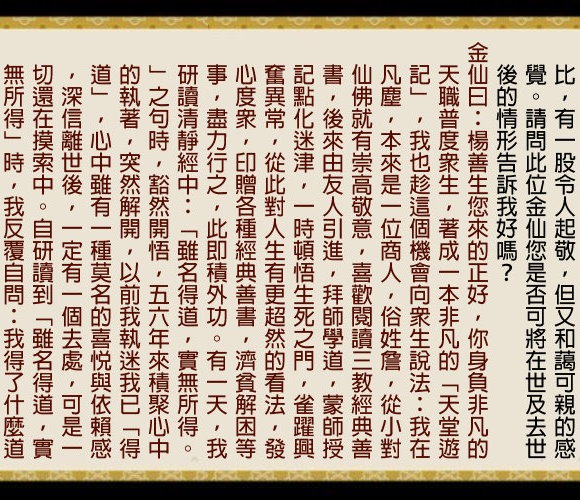 比，有一股令人起敬，但又和藹可親的感
覺。請問此位金仙您是否可將在世及去世
後的情形告訴我好嗎？
金仙曰：楊善生您來的正好，你身負非凡的
天職普度衆生，著成一本非凡的「天堂遊
記」，我也趁這個機會向衆生說法：我在
凡塵，本來是一位商人，俗姓詹，從小對
仙佛就有崇高敬意，喜歡閱讀三教經典善
書，後來由友人引進，拜師學道，蒙師授
記點化迷津，一時頓悟生死之門，雀躍興
奮異常，從此對人生有更超然的看法，發
心度衆，印贈各種經典善書，濟貧解困等
事，盡力行之，此即積外功。有一天，我
研讀清靜經中：「雖名得道，實無所得。
」之句時，豁然開悟，五六年來積聚心中
的執著，突然解開，以前我執迷我已「得
道」，心中雖有一種莫名的喜悅與依賴感
，深信離世後，一定有一個去處，可是一
切還在摸索中。自研讀到「雖名得道，實
無所得」時，我反覆自問：我得了什麼道